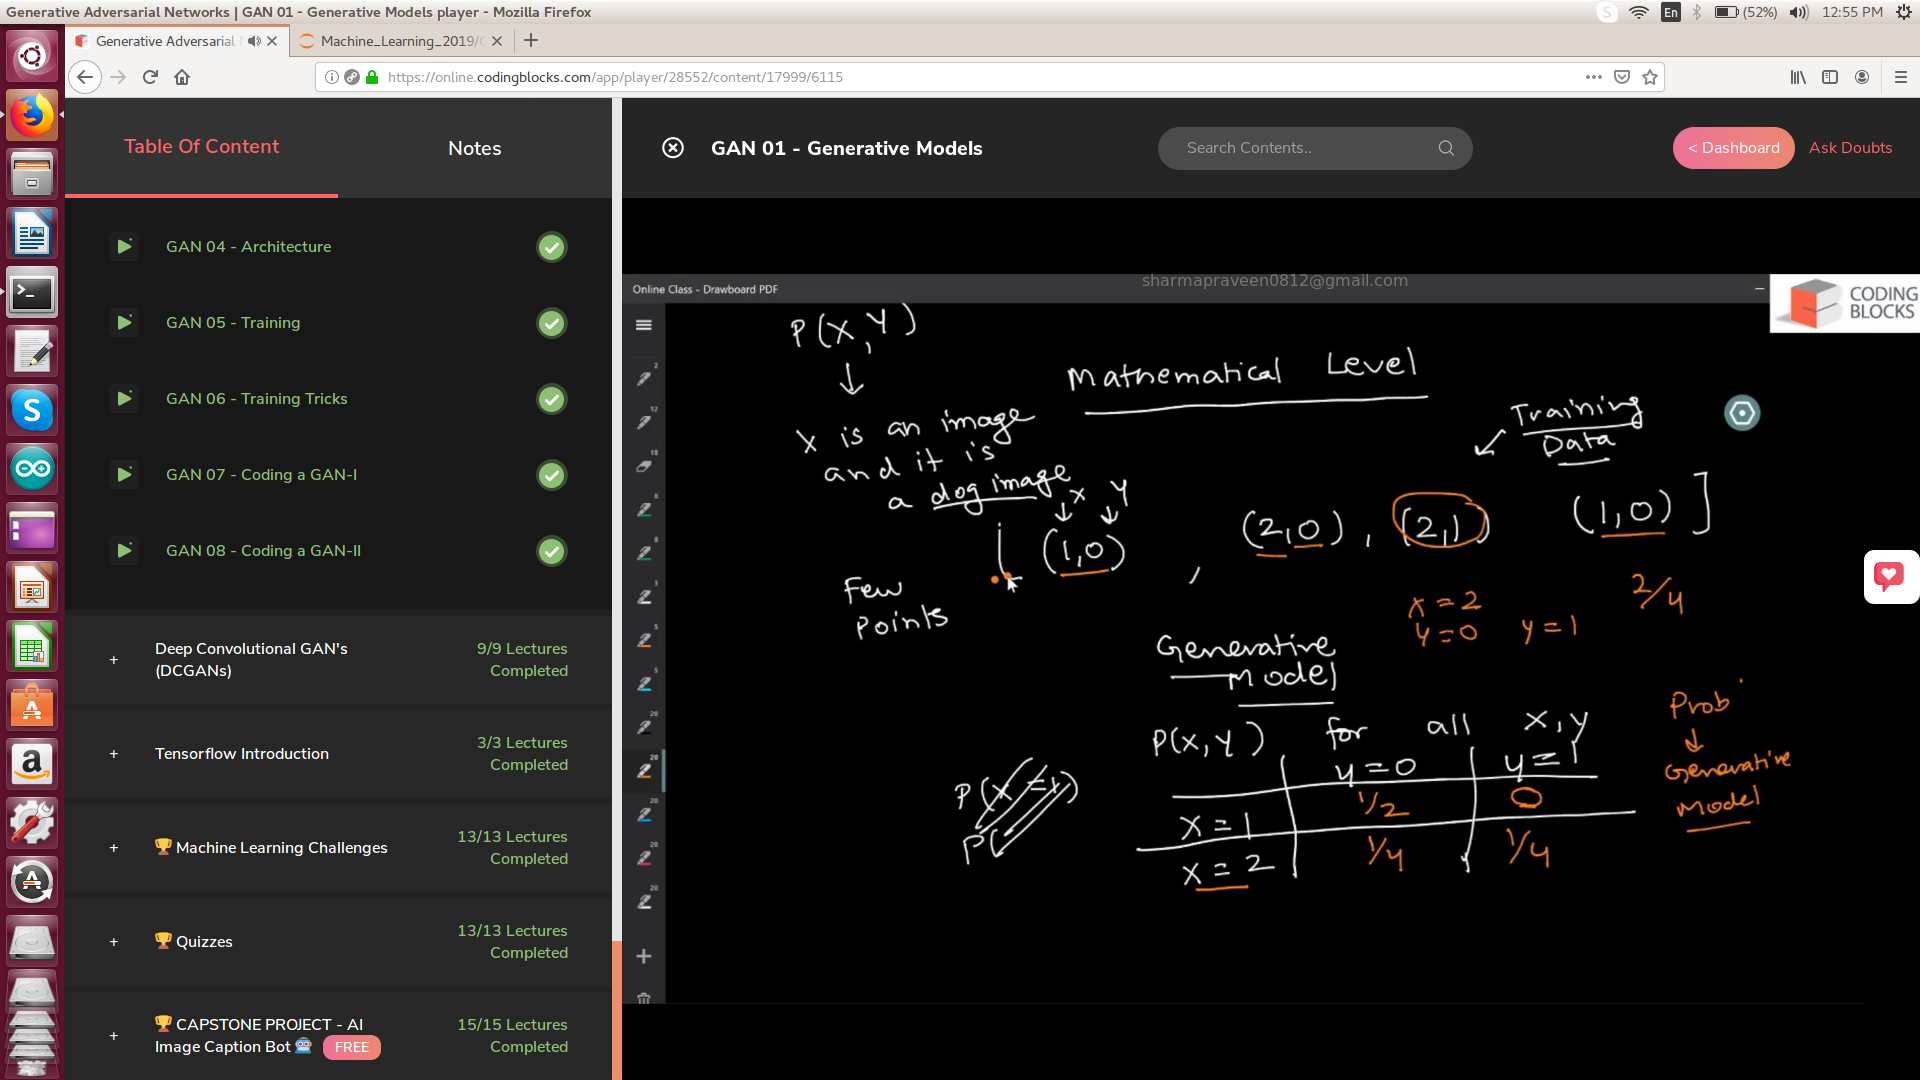 Generative Adversarial Networks | GAN 01 - Generative Models player - Mozilla Firefox
En
(52%)
12:55 PM
Generative Adversarial
Machine_Learning_2019/
https://online.codingblocks.com/app/player/28552/content/17999/6115
Table Of Content
Notes
GAN 04 - Architecture
GAN 05 - Training
GAN 06 - Training Tricks
GAN 07 - Coding a GAN-I
GAN 08 - Coding a GAN-II
+ Deep Convolutional GAN's (DCGANs)
9/9 Lectures Completed
+ Tensorflow Introduction
3/3 Lectures Completed
+ 🏆 Machine Learning Challenges
13/13 Lectures Completed
+ 🏆 Quizzes
13/13 Lectures Completed
+ 🏆 CAPSTONE PROJECT - AI Image Caption Bot 🤖 FREE
15/15 Lectures Completed
GAN 01 - Generative Models
Search Contents..
< Dashboard
Ask Doubts
sharmapraveen0812@gmail.com
Online Class - Drawboard PDF
CODING
BLOCKS
P(X,Y)
↓
Mathematical Level
X is an image
and it is
a dog image
Training
Data
X Y
(1,0) , (2,0) , (2,1) (1,0) ]
Few
points
x = 2
y = 0 y = 1
2/4
Generative
Model
P(X,Y) for all x,y
y = 0 y = 1
x = 1 1/2 0
x = 2 1/4 1/4
P(X = 
P(
Prob
↓
Generative
Model